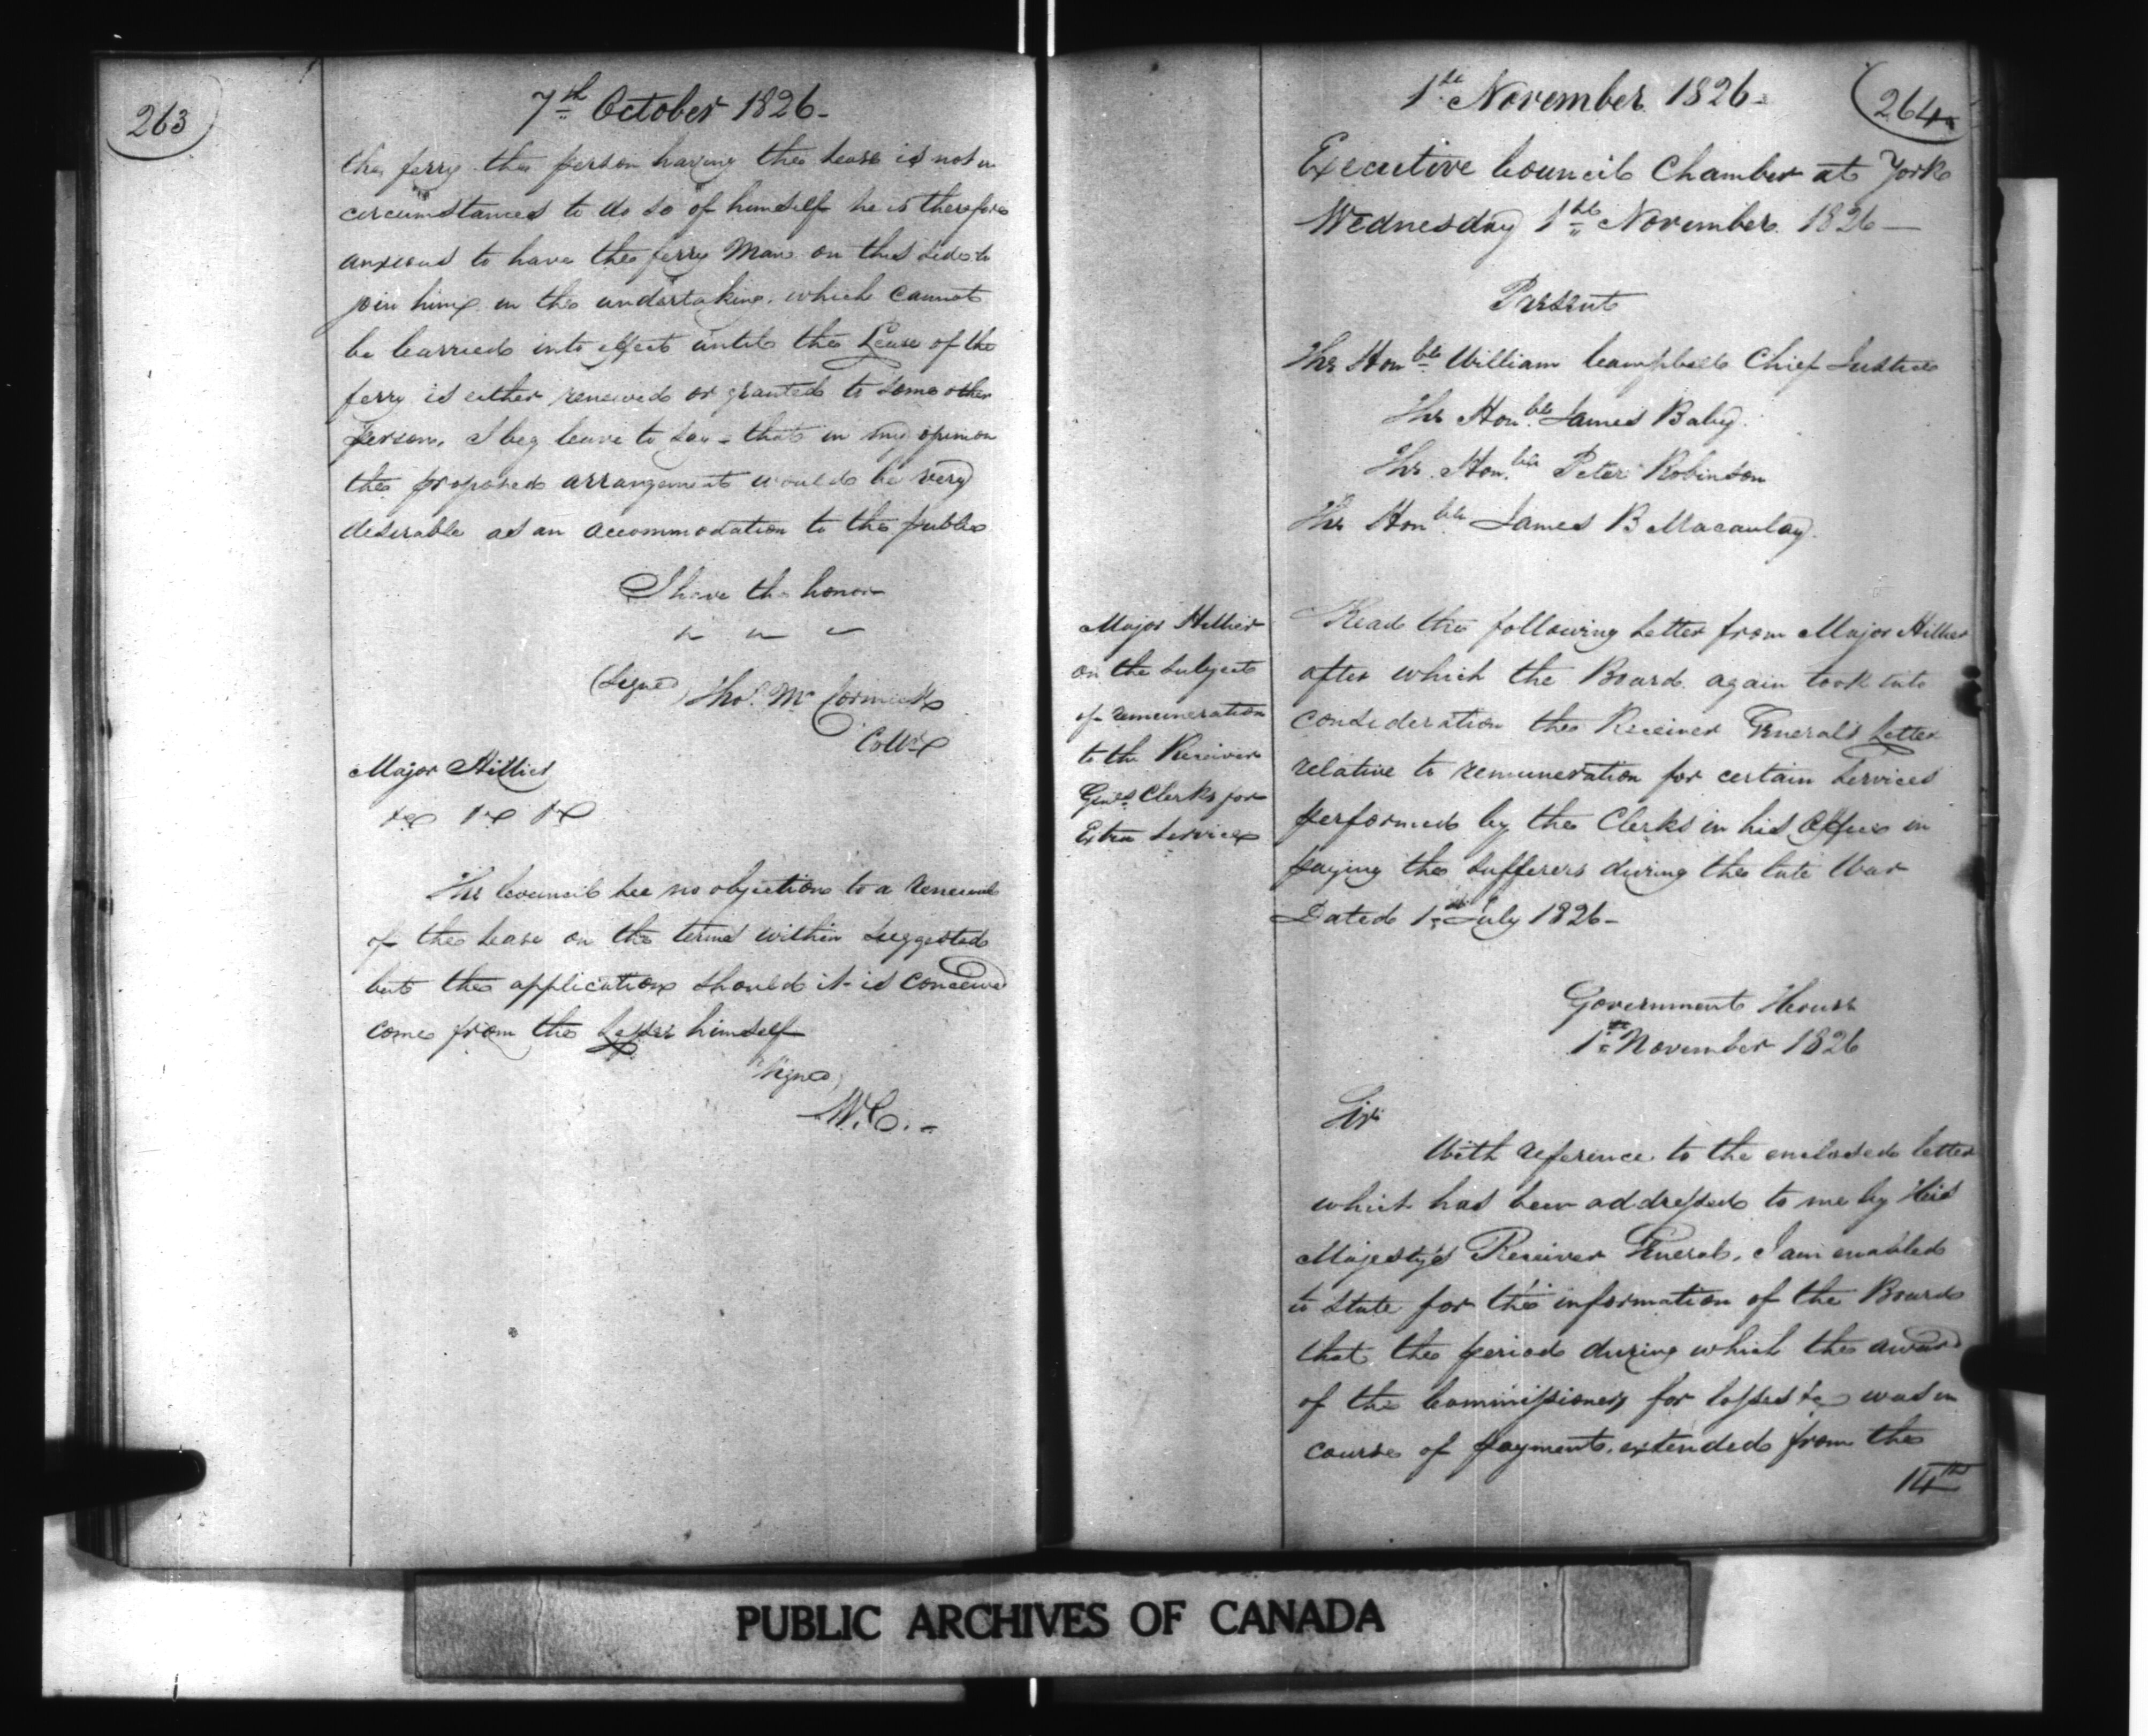 263
7th October 1826-
the ferry the person having the lease is not in
circumstances to do so of himself he is therefore
anxious to have the ferry Man on this side to
join him in the undertaking, which cannot
be carried into effect until the Lease of the
ferry is either renewed or granted to some other
person. I beg leave to say - that in my opinion
the proposed arrangement would be very
desirable as an accommodation to the public
I have the honor
(Signed) Thos. McCormick
Collr
Major Hillier
&c &c &c
The Council see no objection to a renewal
of the lease on the terms within suggested
but the application should it is conceived
come from the Lessee himself
Signed
W.C. -
1st November 1826-
264
Executive Council Chamber at York
Wednesday 1st November 1826 -
Present
The Honble William Campbell Chief Justice
The Honble James Baby
The Honble Peter Robinson
The Honble James B Macaulay
Major Hillier
on the subject
of remuneration
to the Receiver
Genls Clerks for
Extra Services
Read the following letter from Major Hillier
after which the Board again took into
consideration the Receiver General's Letter
relative to remuneration for certain services
performed by the Clerks in his Office in
paying the sufferers during the late War
Dated 1st July 1826-
Government House
1st November 1826
Sir
With reference to the enclosed letter
which has been addressed to me by His
Majesty's Receiver General, I am enabled
to state for the information of the Board
that the period during which the award
of the Commissioners for losses &c was in
course of payment, extended from the
14th
PUBLIC ARCHIVES OF CANADA